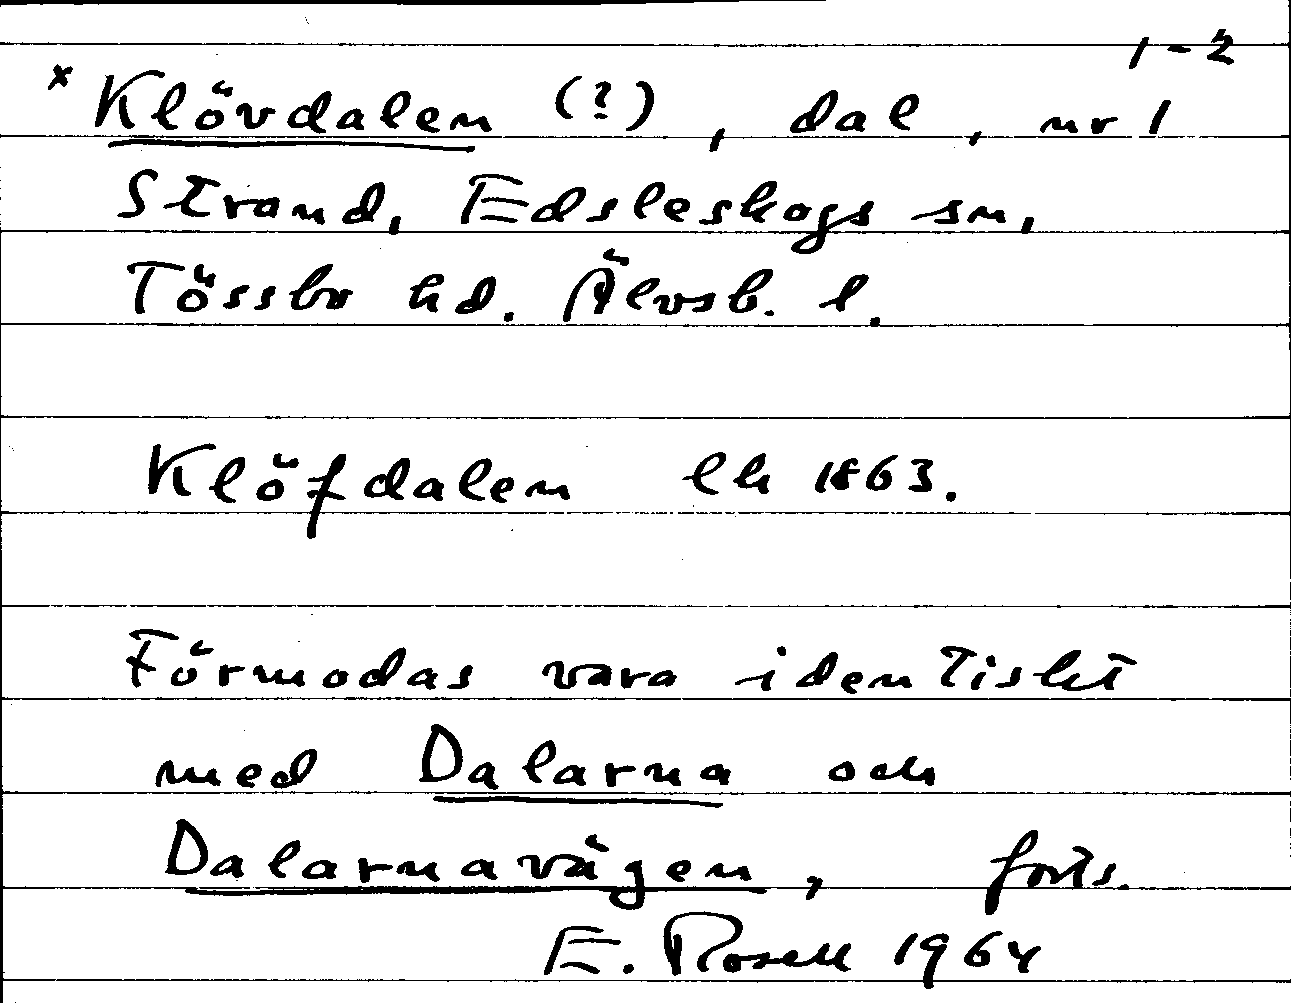 1-2
x Klövdalen (?), dal, nr 1
Strand, Edsleskogs sn,
Tössbo hd. Älvsb. l.
Klöfdalen lh 1863.
Förmodas vara identiskt
med Dalarna och
Dalarnavägen, forts.
E. Rosell 1964